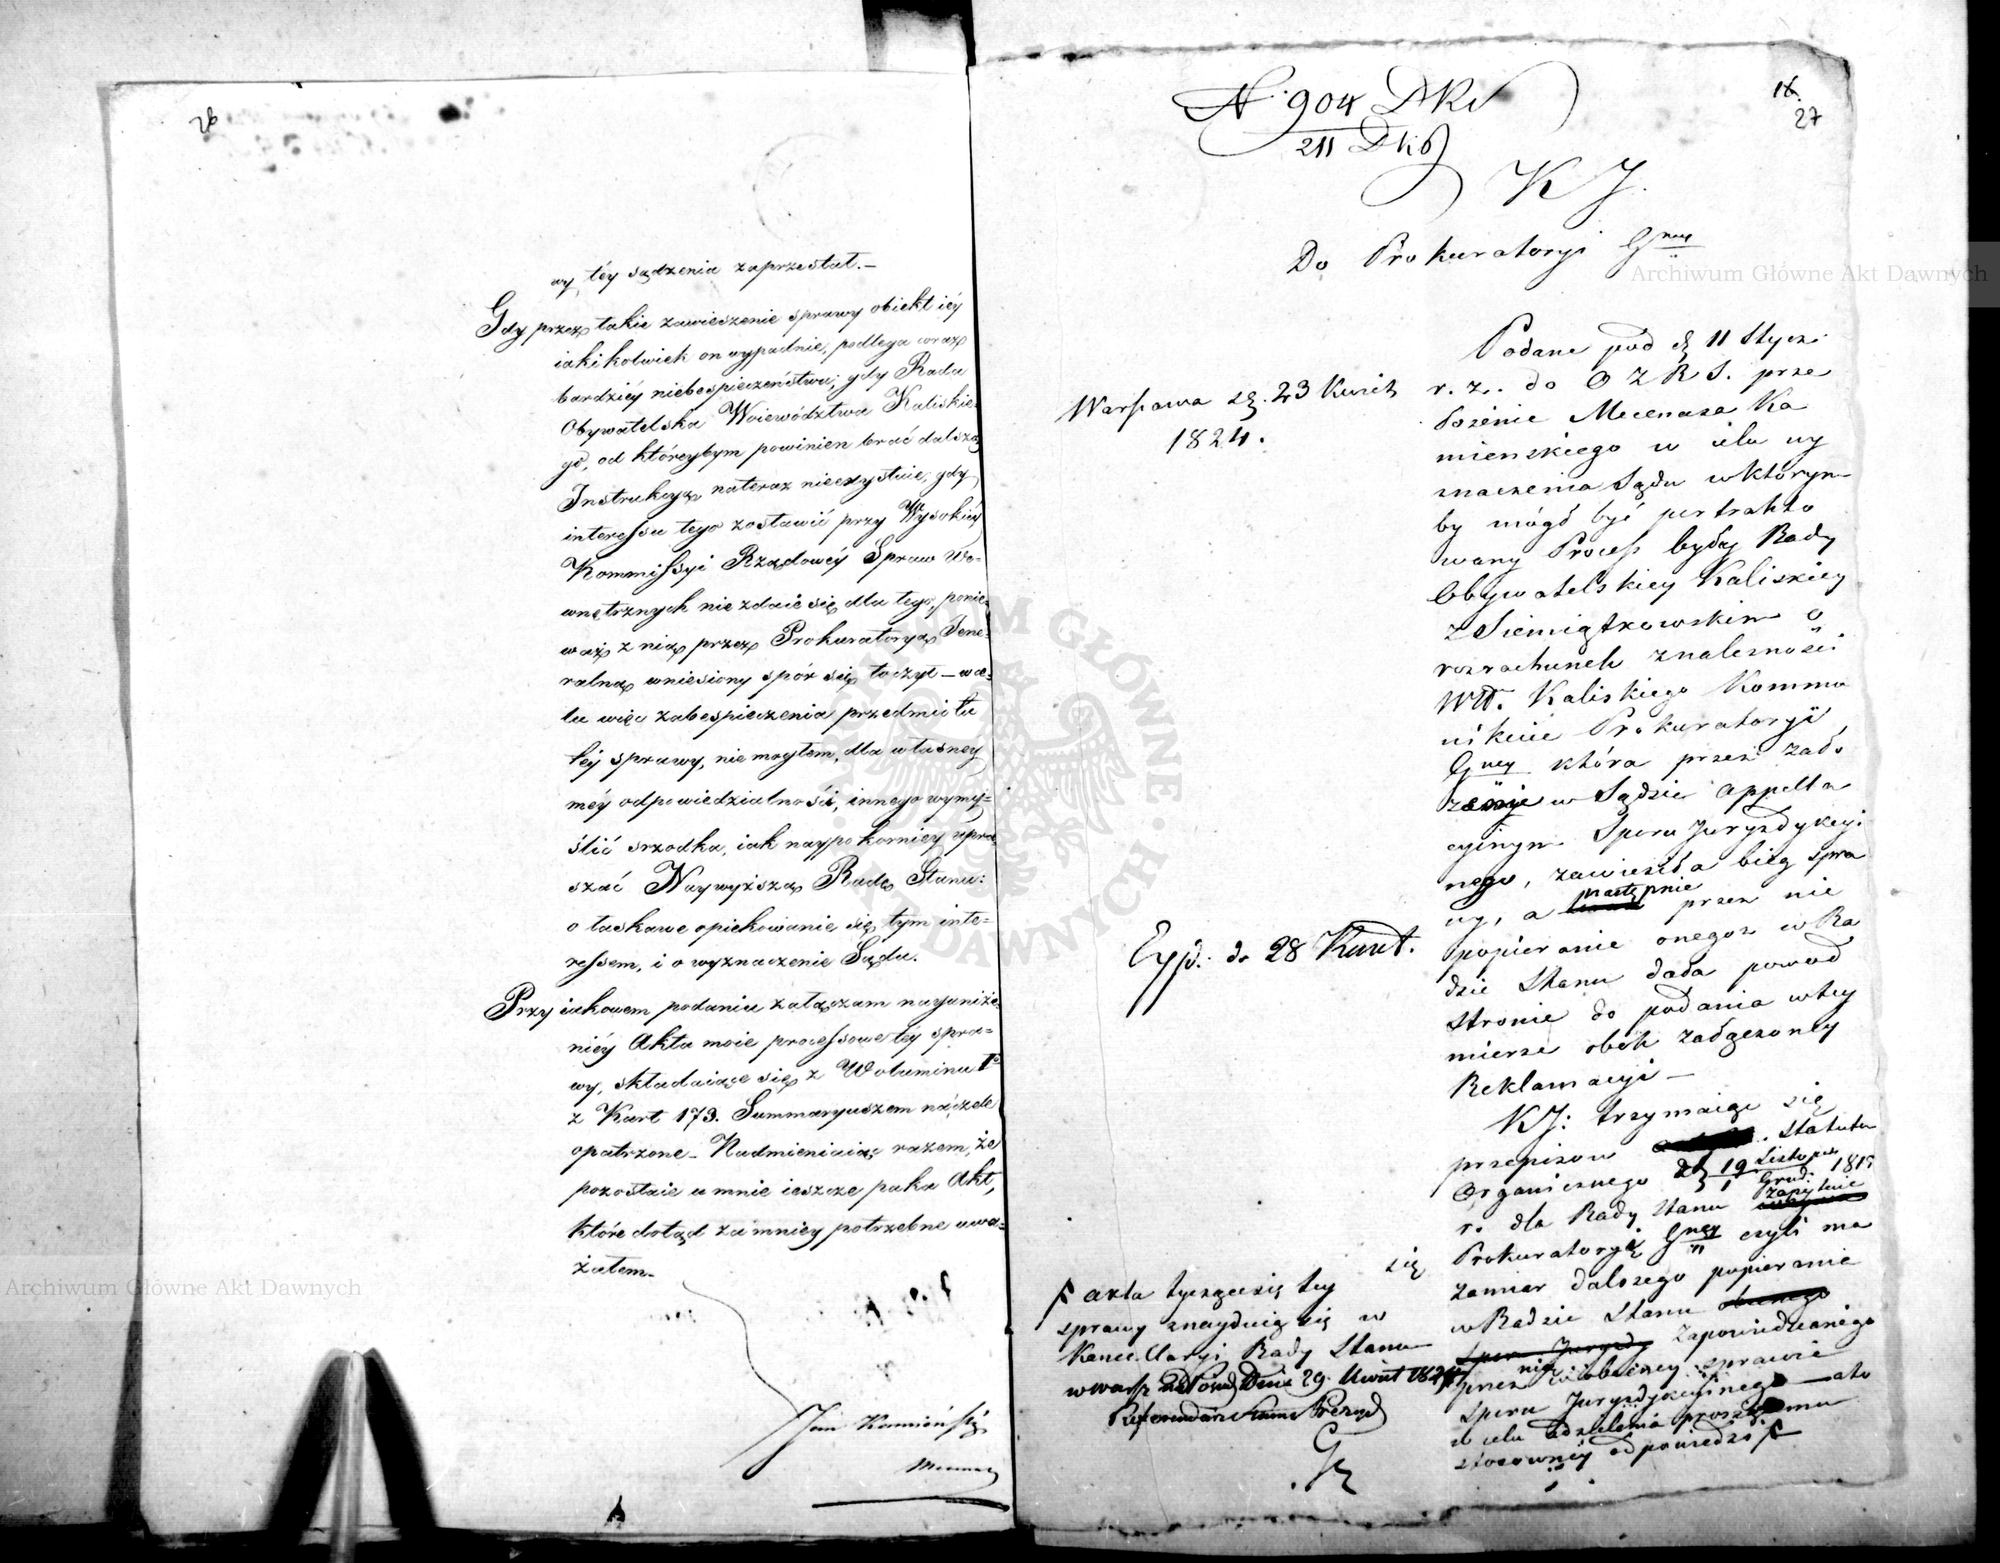 26
wy, téy sądzenia zaprzestał.—
Gdy przez takie zawieszenie sprawy obiekt iéy
iakikolwiek on wypadnie, podlega coraz
bardziéy niebespieczeństwu; gdy Rada
Obywatelska Woiewództwa Kaliskie-
go, od któreybym powinien brać dalszą
Instrukcyą, nateraz nieexystuie, gdy
interessu tego zostawić przy Wysokiéy
Kommissyi Rządowéy Spraw We-
wnętrznych nie zdaie się, dla tego, ponie-
waż z nią przez Prokuratoryą Jene-
ralną wniesiony spór się toczył — w ce-
lu więc zabespieczenia przedmiotu
téy sprawy, nie mogłem, dla własnéy
méy odpowiedzialności, innego wymy-
ślić srzodka, iak naypokorniey upra-
szać Naywyższą Radę Stanu:
o łaskawe opiekowanie się tym inte-
ressem, i o wyznaczenie Sądu.
Przy iakowem podaniu załączam nayuniże-
niéy Akta moie processowe téy spra-
wy, składaiące się z Woluminu I⁰
z Kart 173. Summaryuszem na czele
opatrzone — Nadmieniaiąc razem, że
pozostaie u mnie ieszcze paka Akt,
które dotąd za mniéy potrzebne uwa-
żałem.
Jan Kamiński
Mecenas
27
N. 904 DKi
211 Dkb
K J.
Do Prokuratoryi Gney
Warszawa d. 23 Kwiet
1824.
Podane pod d. 11 Stycz:
r. z. do O Z R S. prze
łożenie Mecenasa Ka
mienskiego w celu wy
znaczenia Sądu w którym
by mógł być pertrakto
wany Process byłey Rady
Obywatelskiey Kaliskiey
z Siemiątkowskim o
rozrachunek znależności
Wd. Kaliskiego Kommu
nikuie Prokuratoryi
Gney która przez zało
żenie w Sądzie appella
cyinym Sporu Juryzdykcyi
nego, zawiesiła bieg spra
wy, a następnie przez nie
popieranie onegoz w Ra
dzie Stanu dała powod
stronie do podania w tey
mierze obok załączoney
Reklamacyi —
Exp. d. 28 Kwiet.
KJ: trzymaiąc się
przepisow Statutu
Organicznego d. 19 Listopa 1815
1 Grud:
r. dla Rady Stanu zapytuie
się Prokuratoryą Gney czyli ma
zamiar dalszego popieranie
w Radzie Stanu
zapowiedzianego
przez nię w obecney sprawie
Sporu Juryzdykcyinego — a to
w celu udzielenia
stosowney odpowiedzi
akta tyczące się tey
sprawy znayduią się w
Kancellaryi Rady Stanu
w Warsz Dnia 29 Kwiet 1824
Referendarz Stanu Prezyd
Archiwum Główne Akt Dawnych
Archiwum Główne Akt Dawnych
ARCHIWUM GŁÓWNE AKT DAWNYCH